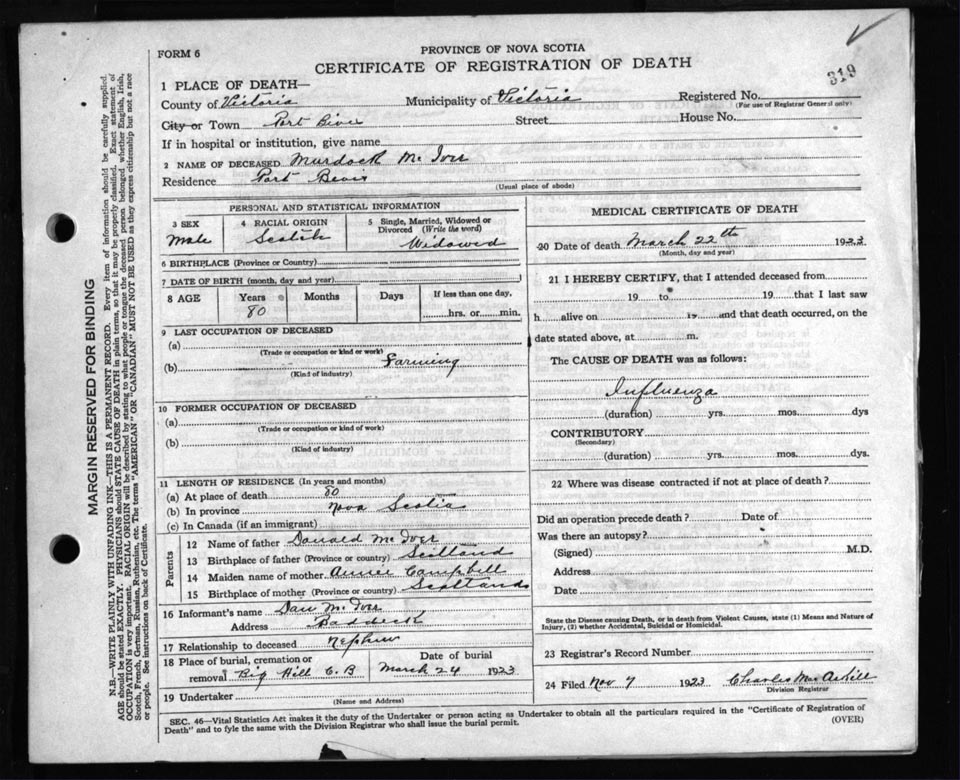 FORM 6
PROVINCE OF NOVA SCOTIA
CERTIFICATE OF REGISTRATION OF DEATH
319
1 PLACE OF DEATH—
County of Victoria Municipality of Victoria Registered No.
(For use of Registrar General only)
City or Town Port Bevis Street House No.
If in hospital or institution, give name
2 NAME OF DECEASED Murdock Mc Iver
Residence Port Bevis
(Usual place of abode)
PERSONAL AND STATISTICAL INFORMATION
3 SEX 4 RACIAL ORIGIN 5 Single, Married, Widowed or Divorced (Write the word)
Male Scotch Widowed
6 BIRTHPLACE (Province or Country)
7 DATE OF BIRTH (month, day and year)
8 AGE Years Months Days If less than one day,
80 hrs. or min.
9 LAST OCCUPATION OF DECEASED
(a)
(Trade or occupation or kind or work)
(b) Farming
(Kind of industry)
10 FORMER OCCUPATION OF DECEASED
(a)
(Trade or occupation or kind of work)
(b)
(Kind of industry)
11 LENGTH OF RESIDENCE (In years and months)
(a) At place of death 80
(b) In province Nova Scotia
(c) In Canada (if an immigrant)
Parents
12 Name of father Donald Mc Iver
13 Birthplace of father (Province or country) Scotland
14 Maiden name of mother Annie Campbell
15 Birthplace of mother (Province or country) Scotland
16 Informant's name Dan Mc Iver
Address Baddeck
17 Relationship to deceased Nephew
18 Place of burial, cremation or removal Big Hill C.B Date of burial March 24 1923
19 Undertaker
(Name and Address)
MEDICAL CERTIFICATE OF DEATH
20 Date of death March 22th 1923
(Month, day and year)
21 I HEREBY CERTIFY, that I attended deceased from
19 to 19 that I last saw
h alive on 19 and that death occurred, on the
date stated above, at m.
The CAUSE OF DEATH was as follows:
Influenza
(duration) yrs. mos. dys
CONTRIBUTORY
(Secondary)
(duration) yrs. mos. dys.
22 Where was disease contracted if not at place of death?
Did an operation precede death? Date of
Was there an autopsy?
(Signed) M.D.
Address
Date
State the Disease causing Death, or in death from Violent Causes, state (1) Means and Nature of
Injury, (2) whether Accidental, Suicidal or Homicidal.
23 Registrar's Record Number
24 Filed Nov 7 1923 Charles
Division Registrar
SEC. 46—Vital Statistics Act makes it the duty of the Undertaker or person acting as Undertaker to obtain all the particulars required in the "Certificate of Registration of
Death" and to fyle the same with the Division Registrar who shall issue the burial permit.
(OVER)
MARGIN RESERVED FOR BINDING
N.B.—WRITE PLAINLY WITH UNFADING INK—THIS IS A PERMANENT RECORD. Every item of information should be carefully supplied.
AGE should be stated EXACTLY. PHYSICIANS should STATE CAUSE OF DEATH in plain terms, so that it may be properly classified. Exact statement of
OCCUPATION is very important. RACIAL ORIGIN will be described by stating to what people or tongue the deceased person belonged whether English, Irish,
Scotch, French, German, Russian, Ruthenian, etc. The terms "AMERICAN" OR "CANADIAN" MUST NOT BE USED as they express citizenship but not a race
or people. See instructions on back of Certificate.